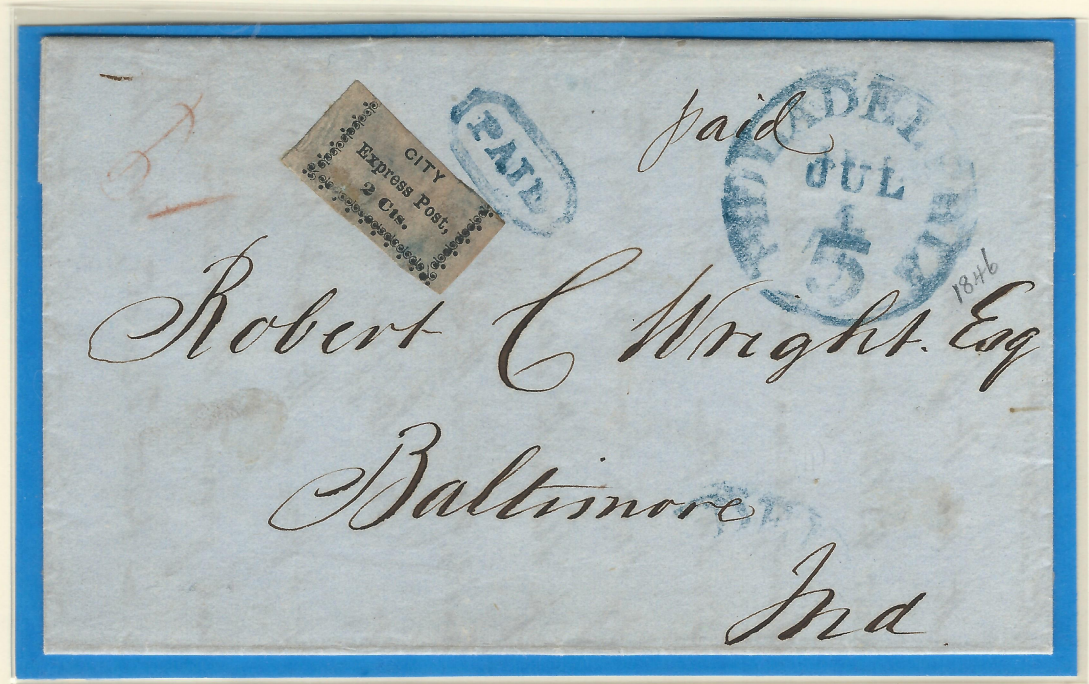 CITY
Express Post,
2 Cts.
PAID
paid
PHILADELPHIA
JUL
1
5
1846
Robert C Wright. Esq
Baltimore
Md